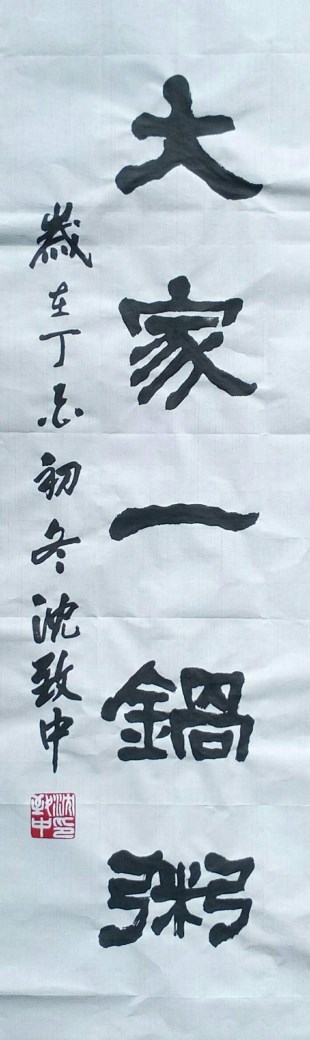 大家一鍋粥
歲在丁酉初冬沈致中
沈致中印